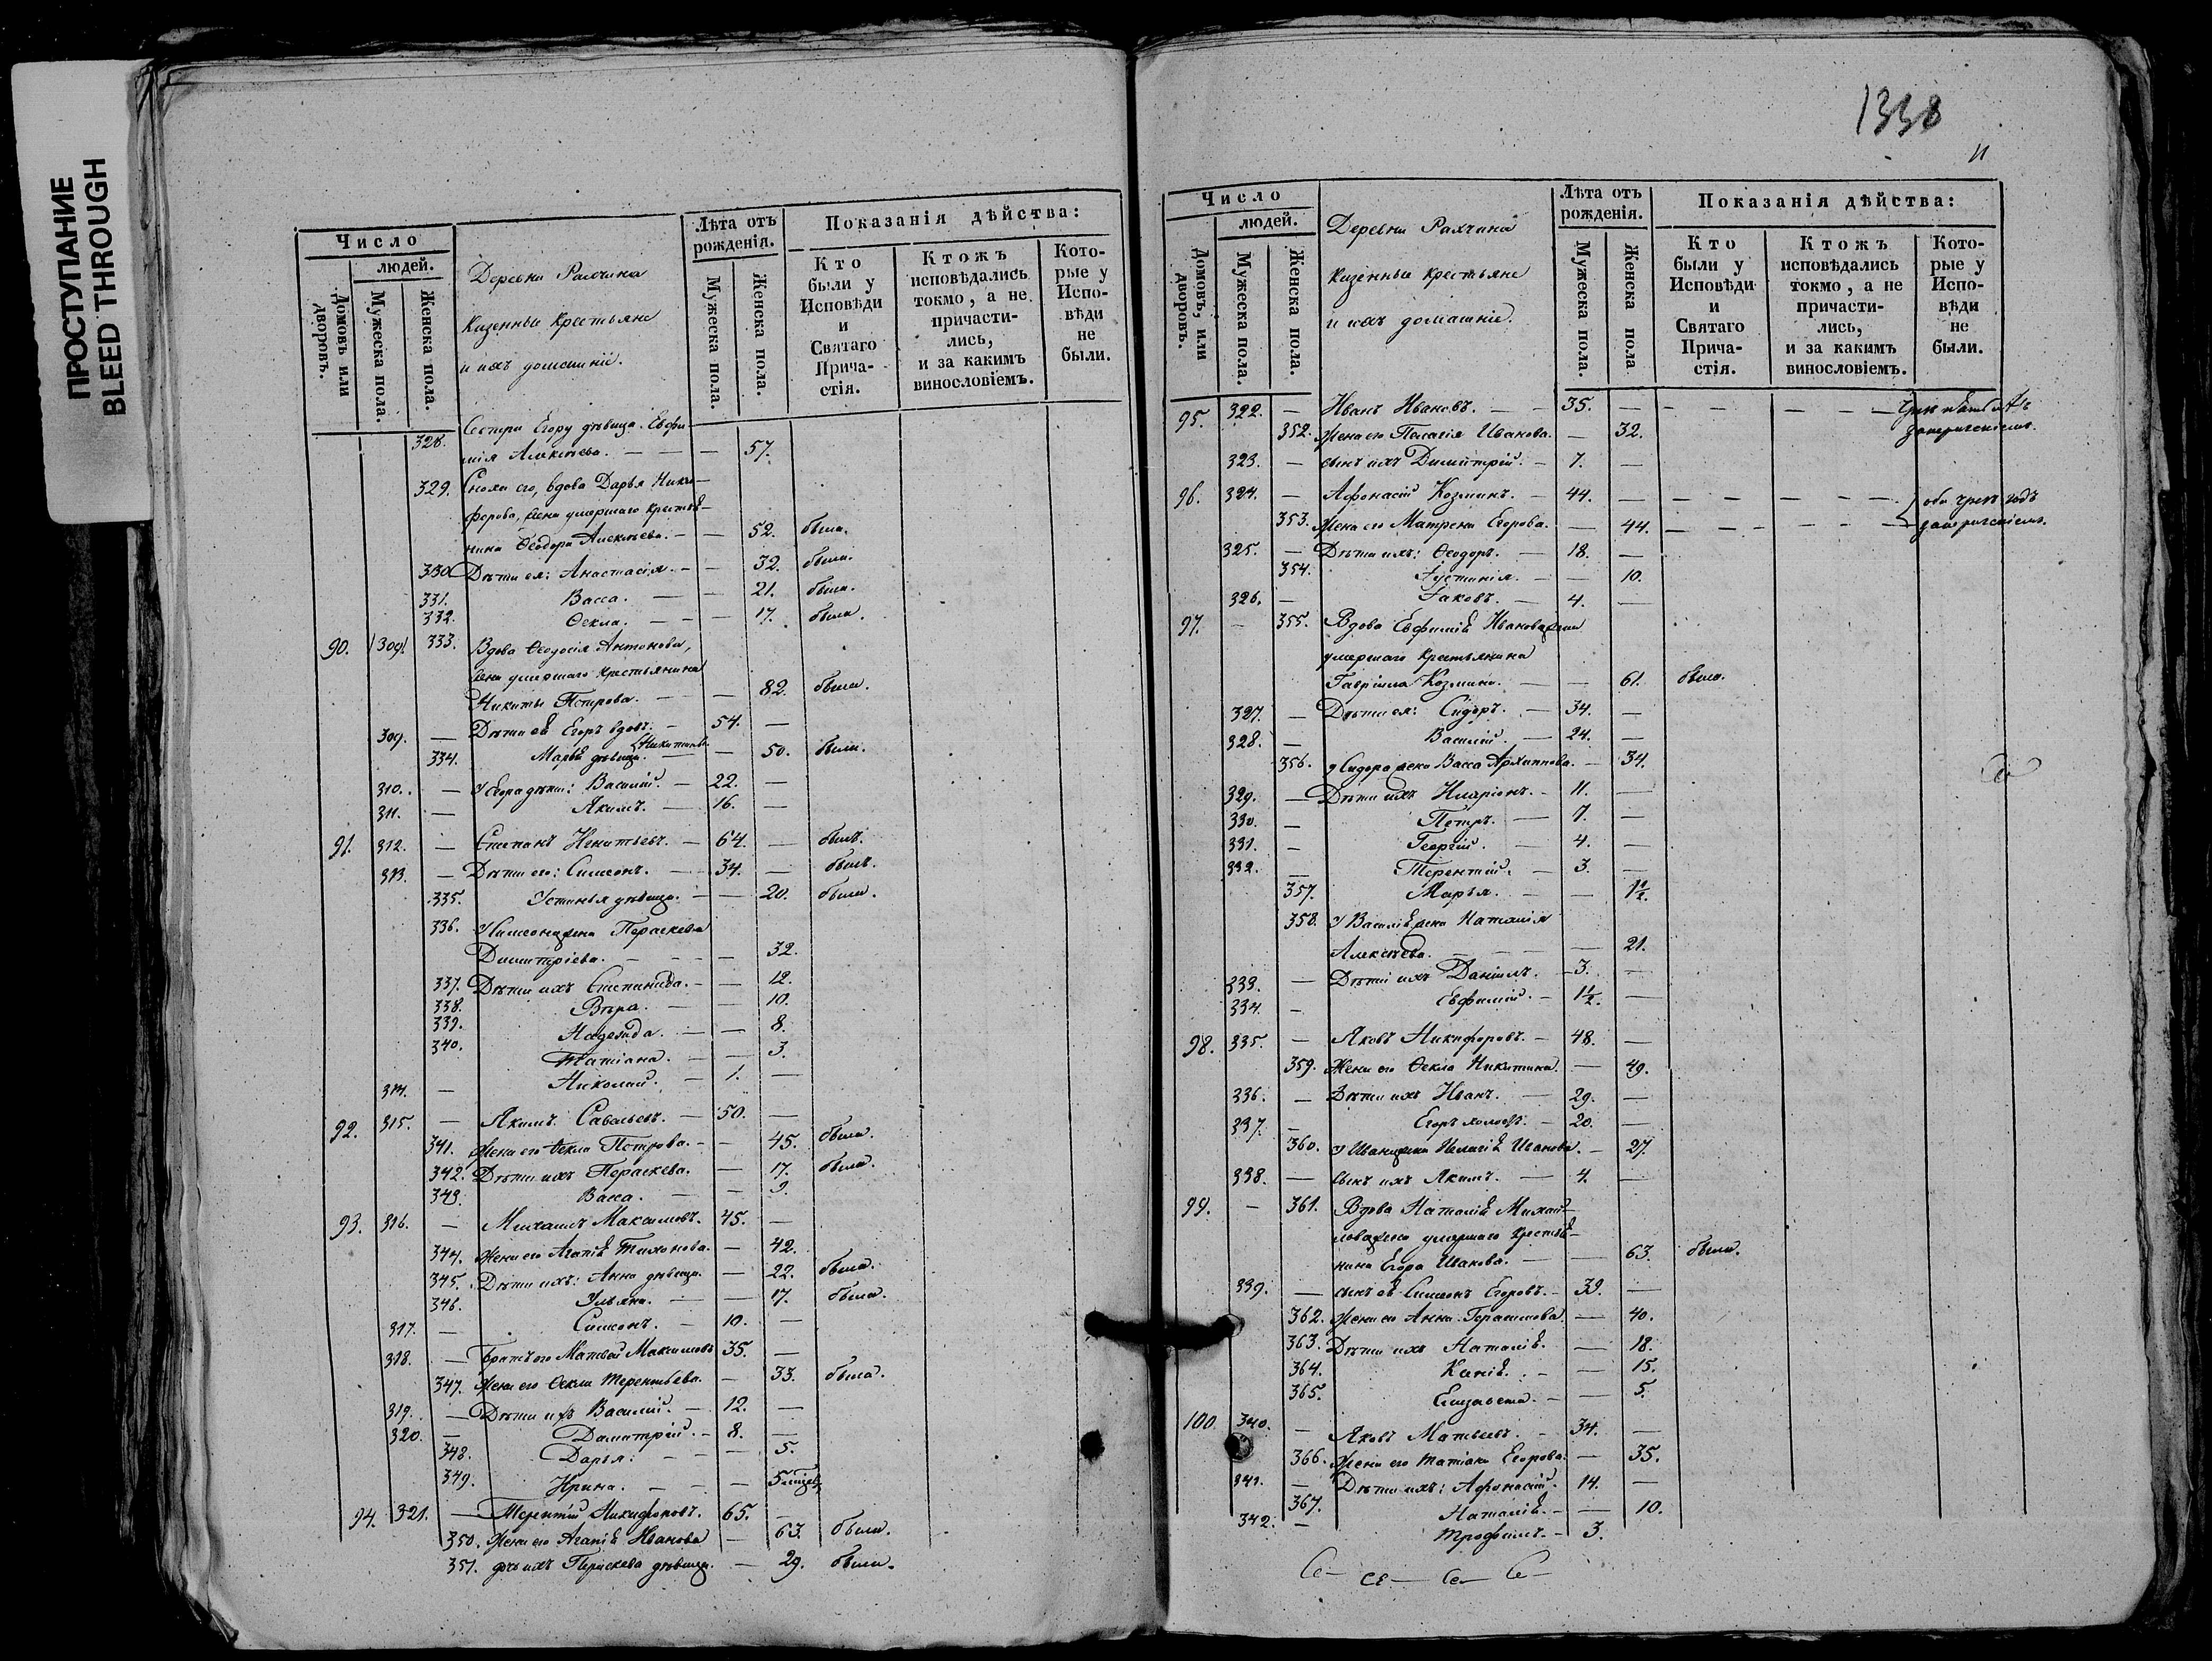 ПРОСТУПАНИЕ
BLEED THROUGH
1338
11
Число
людей.
Домовъ или дворовъ.
Мужеска пола.
Женска пола.
Деревни Рахчина
Казенные крестьяне
и ихъ домашніе.
Лѣта отъ рожденія.
Мужеска пола.
Женска пола.
Показанія дѣйства:
Кто были у Исповѣди и Святаго Причастія.
Ктожъ исповѣдались токмо, а не причастились, и за какимъ винословіемъ.
Которые у Исповѣди не были.
328. Сестра Егору дѣвица Евфи-
мія Алексѣева. — — — 57.
329. Сноха его, вдова Дарья Ники-
форова, жена умершаго крестья-
нина Ѳеодора Алексѣева. — — 52. была.
330 Дѣти ея: Анастасія. — — 32. была.
331. Васса. — — 21. была.
332. Ѳекла. — — 17. была.
90. 309 333. Вдова Ѳеодосія Антонова,
жена умершаго крестьянина
Никиты Петрова. — — 82. была.
309. — Дѣти ея Егоръ вдовъ. — 54. —
334. Марья дѣвица. Никитины — — 50. была.
310. — У Егора дѣти: Василій. — 22. —
311. — Якимъ. — 16. —
91. 312. — Степанъ Игнатьевъ. — 64. — былъ.
313. — Дѣти его: Симеонъ. — 34. — былъ.
335. Устинья дѣвица. — — 20. была.
336. У Симеона жена Параскева
Димитріева. — — — 32.
337. Дѣти ихъ Степанида. — — 12.
338. Вѣра. — 10.
339. Надежда. — — 8.
340. Татіана. — — 3.
314. — Николай. — 1. —
92. 315. — Якимъ Савельевъ. — 50. —
341. Жена его Ѳекла Петрова. — — 45. была.
342. Дѣти ихъ Параскева. — 17. была.
343. Васса. — — 9.
93. 316. — Михаилъ Максимовъ. 45. —
344. Жена его Агапія Тихонова. — 42.
345. Дѣти ихъ: Анна дѣвица. — 22. была.
346. Ульяна. — — 17. была.
317. — Симеонъ. — 10. —
318. — Братъ его Матвей Максимовъ 35. —
347. Жена его Ѳекла Терентьева. — 33. была.
319. — Дѣти ихъ Василій. — 12. —
320. — Димитрій. — 8. —
348. Дарья: — — 5.
349. Ирина. — — 5. мѣсяц.
94. 321. — Терентій Никифоровъ. 65. —
350. Жена его Агапія Иванова — 63. была.
351. дочь ихъ Параскева дѣвица. — 29. была.
Число
людей.
Домовъ, или дворовъ.
Мужеска пола.
Женска пола.
Деревни Рахчина
Казенные крестьяне
и ихъ домашніе.
Лѣта отъ рожденія.
Мужеска пола.
Женска пола
Показанія дѣйства:
Кто были у Исповѣди и Святаго Причастія.
Ктожъ исповѣдались токмо, а не причастились, и за какимъ винословіемъ.
Которые у Исповѣди не были.
95. 322. — Иванъ Ивановъ. — — 35. — — — — —
352. Жена его Пелагія Иванова. — 32.
323. — сынъ ихъ Димитрій. — 7. —
96. 324. — Афонасій Козминъ. — 44. — — — — — — оба чрезъ годъ
353. Жена его Матрена Егорова. — 44. — — — — —
325. — Дѣти ихъ: Ѳеодоръ. — 18. —
354. Іустинія. — — 10.
326. — Іаковъ. — 4. —
97. — 355. Вдова Евфимія Иванова жена
умершаго крестьянина
Гавріила Козмина. — — 61. была.
327. — Дѣти ея: Сидоръ. — 34. —
328. — Василій. — 24. —
356. у Сидора жена Васса Архиппова. — 34.
329. — Дѣти ихъ Иларіонъ. — 11. —
330. — Петръ. — 7. —
331. — Георгій. — 4. —
332. — Терентій. — 3. —
357. Марья. — — 1 1/2.
358. У Василія жена Наталія
Алексѣева. — — — 21.
333. — Дѣти ихъ Даніилъ. — 3. —
334. — Евфимій. — 1 1/2. —
98. 335. — Яковъ Никифоровъ. — 48. —
359. Жена его Ѳекла Никитина. — 49.
336. — Дѣти ихъ Иванъ. — 29. —
337. — Егоръ холостъ. — 20. —
360. У Ивана жена Пелагія Иванова. — 27.
338. — сынъ ихъ Якимъ. — 4. —
99. — 361. Вдова Наталія Михай-
лова жена умершаго крестья-
нина Егора Иванова. — — 63. была.
339. — сынъ ея Симеонъ Егоровъ. — 39. —
362. Жена его Анна Герасимова — 40.
363. Дѣти ихъ Наталія. — 18.
364. Ксенія. — — 15.
365. Елизавета. — — 5.
100. 340. — Яковъ Матвеевъ. — 34. —
366. Жена его Татіана Егорова. — 35.
341. — Дѣти ихъ: Афонасій. — 14. —
367. Наталія. — — 10.
342. — Трофимъ. — 3.